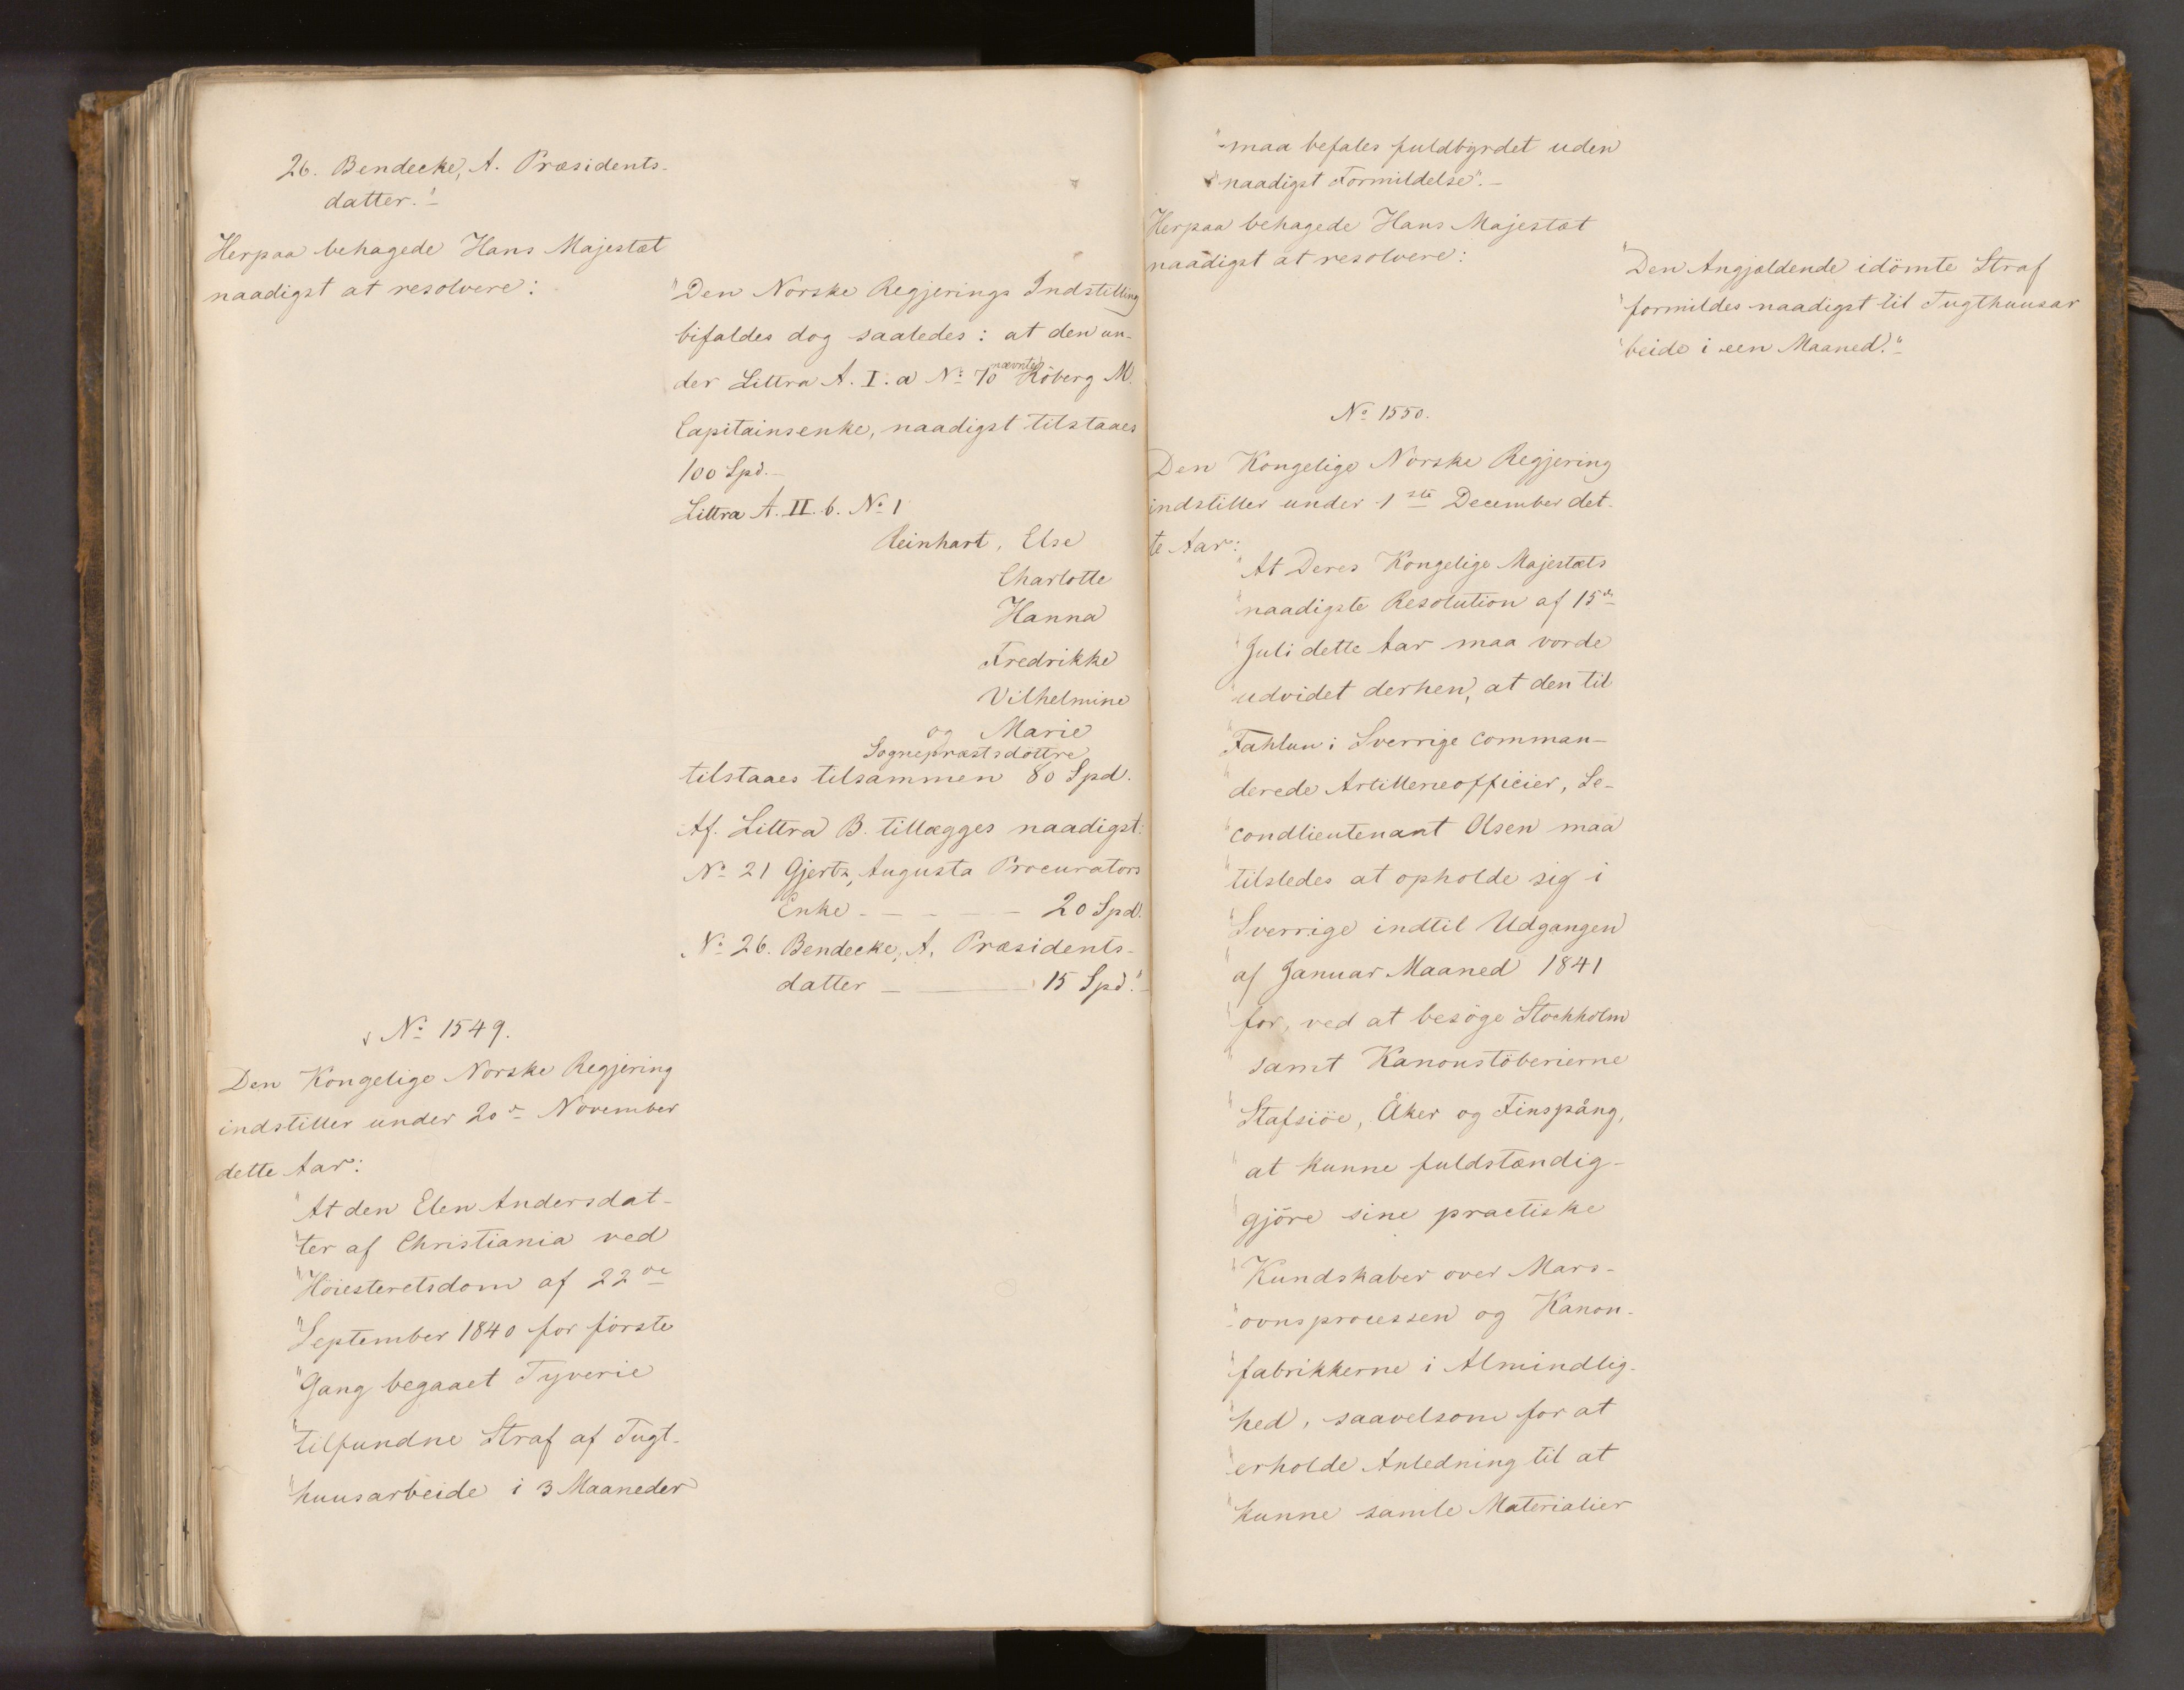 26. Bendecke, A. Præsidents-
datter."-
Herpaa behagede Hans Majestæt
naadigst at resolvere:
"Den Norske Regjerings Indstilling
bifaldes dog saaledes: at den un-
der Littra A. I. a No 70 nævnte Röberg M.
Capitainsenke, naadigst tilstaaes
100 Spd.-
Littra A. II. b. No 1
Reinhart, Else
Charlotte
Hanna
Fredrikke
Vilhelmine
og Marie
Sognepræstsdöttre
tilstaaes tilsammen 80 Spd.
Af. Littra B. tillægges naadigst:
No 21 Gjertz, Augusta Procurators
Enke - - - - - 20 Spd.
No 26. Bendecke, A. Præsidents-
datter - - 15 Spd."-
No 1549.
Den Kongelige Norske Regjering
indstiller under 20de November
dette Aar:
"At den Elen Andersdat-
"ter af Christiania ved
"Höiesteretsdom af 22de
"September 1840 for förste
"Gang begaaet Tyverie
"tilfundne Straf af Tugt-
"huusarbeide i 3 Maaneder
"maa befales fuldbyrdet uden
"naadigst Formildelse".-
Herpaa behagede Hans Majestæt
naadigst at resolvere:
"Den Angjældende idömte Straf
"formildes naadigst til Tugthuusar
"beide i een Maaned."-
No 1550.
Den Kongelige Norske Regjering
indstiller under 1ste December det-
te Aar:
"At Deres Kongelige Majestæts
"naadigste Resolution af 15de
"Juli dette Aar maa vorde
"udvidet derhen, at den til
"Fahlun i Sverrige comman-
"derede Artillerieofficier, Se-
"condlieutenant Olsen maa
"tilstedes at opholde sig i
"Sverrige indtil Udgangen
"af Januar Maaned 1841
"for, ved at besöge Stockholm
"samt Kanonstöberierne
"Stafsiöe, Åker og Finspång,
"at kunne fuldstændig-
"gjöre sine practiske
"Kundskaber over Mars-
"ovnsprocessen og Kanon-
"fabrikkerne i Almindelig-
"hed, saavelsom for at
"erholde Anledning til at
"kunne samle Materialier